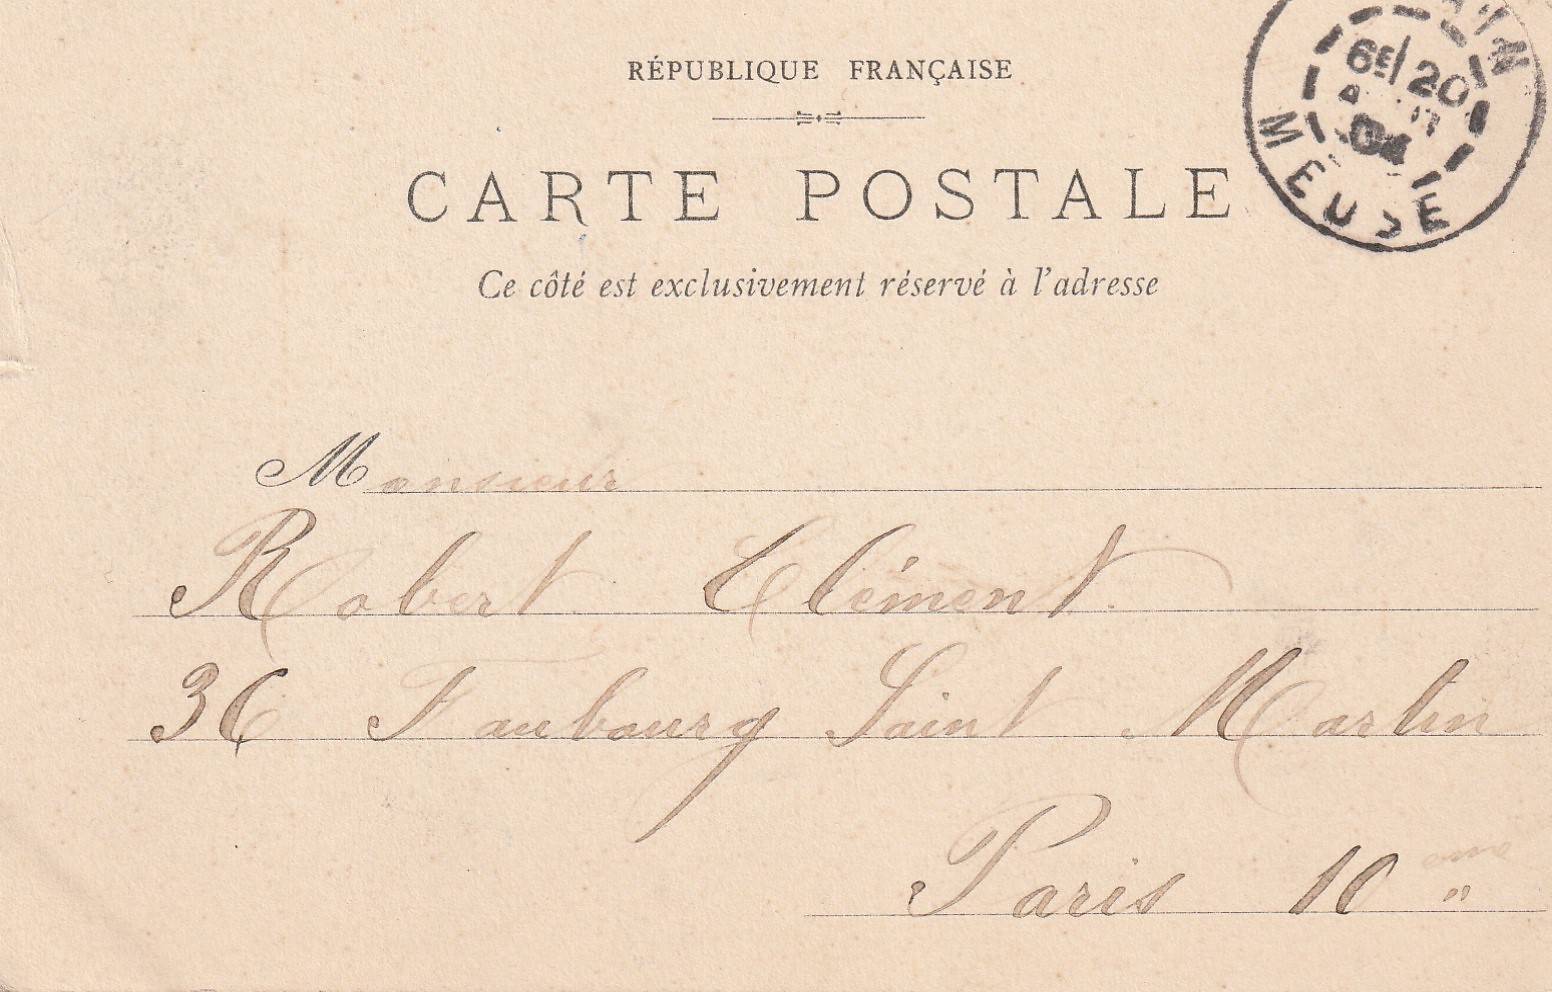 RÉPUBLIQUE FRANÇAISE
CARTE POSTALE
Ce côté est exclusivement réservé à l'adresse
6E/20
04
MEUSE
Monsieur
Robert Clément
36 Faubourg Saint Martin
Paris 10 ème